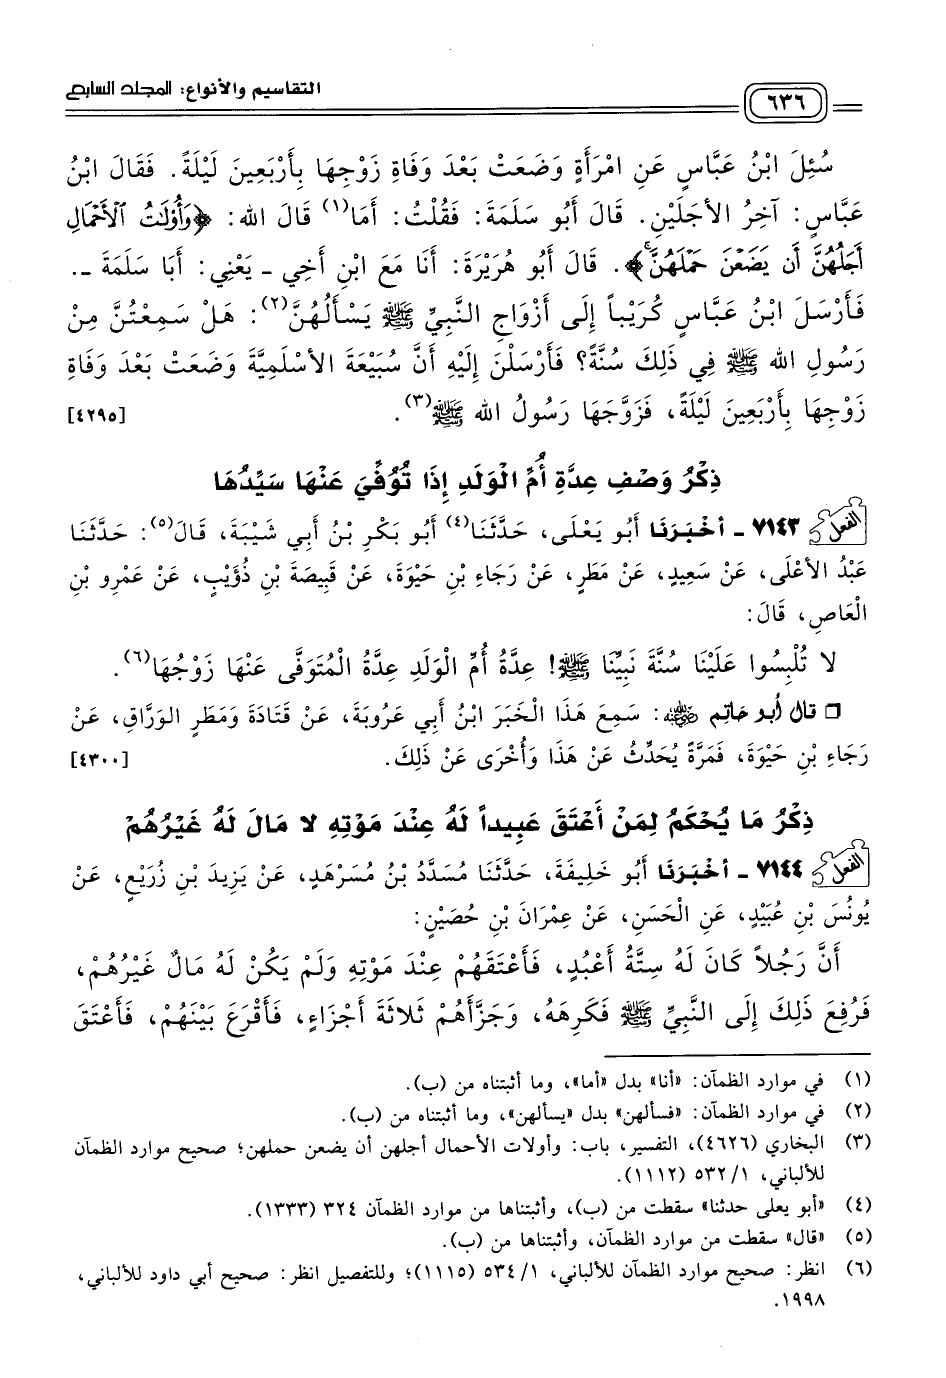 التقاسيم والأنواع: المجلد السابع
٦٣٦
سُئِلَ ابْنُ عَبَّاسٍ عَنِ امْرَأَةٍ وَضَعَتْ بَعْدَ وَفَاةِ زَوْجِهَا بِأَرْبَعِينَ لَيْلَةً. فَقَالَ ابْنُ
عَبَّاسٍ: آخِرُ الأَجَلَيْنِ. قَالَ أَبُو سَلَمَةَ: فَقُلْتُ: أَمَا(١) قَالَ الله: ﴿وَأُوْلَٰتُ ٱلْأَحْمَالِ
أَجَلُهُنَّ أَن يَضَعْنَ حَمْلَهُنَّۚ﴾. قَالَ أَبُو هُرَيْرَةَ: أَنَا مَعَ ابْنِ أَخِي ـ يَعْنِي: أَبَا سَلَمَةَ ـ.
فَأَرْسَلَ ابْنُ عَبَّاسٍ كُرَيْباً إِلَى أَزْوَاجِ النَّبِيِّ ﷺ يَسْأَلُهُنَّ(٢): هَلْ سَمِعْتُنَّ مِنْ
رَسُولِ الله ﷺ فِي ذَلِكَ سُنَّةً؟ فَأَرْسَلْنَ إِلَيْهِ أَنَّ سُبَيْعَةَ الأَسْلَمِيَّةَ وَضَعَتْ بَعْدَ وَفَاةِ
زَوْجِهَا بِأَرْبَعِينَ لَيْلَةً، فَزَوَّجَهَا رَسُولُ الله ﷺ(٣). [٤٢٩٥]
ذِكْرُ وَصْفِ عِدَّةِ أُمِّ الْوَلَدِ إِذَا تُوُفِّيَ عَنْهَا سَيِّدُهَا
الفعل ٧١٤٣ ـ أَخْبَرَنَا أَبُو يَعْلَى، حَدَّثَنَا(٤) أَبُو بَكْرِ بْنُ أَبِي شَيْبَةَ، قَالَ(٥): حَدَّثَنَا
عَبْدُ الأَعْلَى، عَنْ سَعِيدٍ، عَنْ مَطَرٍ، عَنْ رَجَاءِ بْنِ حَيْوَةَ، عَنْ قَبِيصَةَ بْنِ ذُؤَيْبٍ، عَنْ عَمْرِو بْنِ
الْعَاصِ، قَالَ:
لا تُلْبِسُوا عَلَيْنَا سُنَّةَ نَبِيِّنَا ﷺ! عِدَّةُ أُمِّ الْوَلَدِ عِدَّةُ الْمُتَوَفَّى عَنْهَا زَوْجُهَا(٦).
❒ قال أبو حاتم: سَمِعَ هَذَا الْخَبَرَ ابْنُ أَبِي عَرُوبَةَ، عَنْ قَتَادَةَ وَمَطَرٍ الوَرَّاقِ، عَنْ
رَجَاءِ بْنِ حَيْوَةَ، فَمَرَّةً يُحَدِّثُ عَنْ هَذَا وَأُخْرَى عَنْ ذَلِكَ. [٤٣٠٠]
ذِكْرُ مَا يُحْكَمُ لِمَنْ أَعْتَقَ عَبِيداً لَهُ عِنْدَ مَوْتِهِ لا مَالَ لَهُ غَيْرُهُمْ
الفعل ٧١٤٤ ـ أَخْبَرَنَا أَبُو خَلِيفَةَ، حَدَّثَنَا مُسَدَّدُ بْنُ مُسَرْهَدٍ، عَنْ يَزِيدَ بْنِ زُرَيْعٍ، عَنْ
يُونُسَ بْنِ عُبَيْدٍ، عَنِ الْحَسَنِ، عَنْ عِمْرَانَ بْنِ حُصَيْنٍ:
أَنَّ رَجُلاً كَانَ لَهُ سِتَّةُ أَعْبُدٍ، فَأَعْتَقَهُمْ عِنْدَ مَوْتِهِ وَلَمْ يَكُنْ لَهُ مَالٌ غَيْرُهُمْ،
فَرُفِعَ ذَلِكَ إِلَى النَّبِيِّ ﷺ فَكَرِهَهُ، وَجَزَّأَهُمْ ثَلاثَةَ أَجْزَاءٍ، فَأَقْرَعَ بَيْنَهُمْ، فَأَعْتَقَ
(١) في موارد الظمآن: «أنا» بدل «أما»، وما أثبتناه من (ب).
(٢) في موارد الظمآن: «فسألهن» بدل «يسألهن»، وما أثبتناه من (ب).
(٣) البخاري (٤٦٢٦)، التفسير، باب: وأولات الأحمال أجلهن أن يضعن حملهن؛ صحيح موارد الظمآن
للألباني، ١/ ٥٣٢ (١١١٢).
(٤) «أبو يعلى حدثنا» سقطت من (ب)، وأثبتناها من موارد الظمآن ٣٢٤ (١٣٣٣).
(٥) «قال» سقطت من موارد الظمآن، وأثبتناها من (ب).
(٦) انظر: صحيح موارد الظمآن للألباني، ١/ ٥٣٤ (١١١٥)؛ وللتفصيل انظر: صحيح أبي داود للألباني،
١٩٩٨.